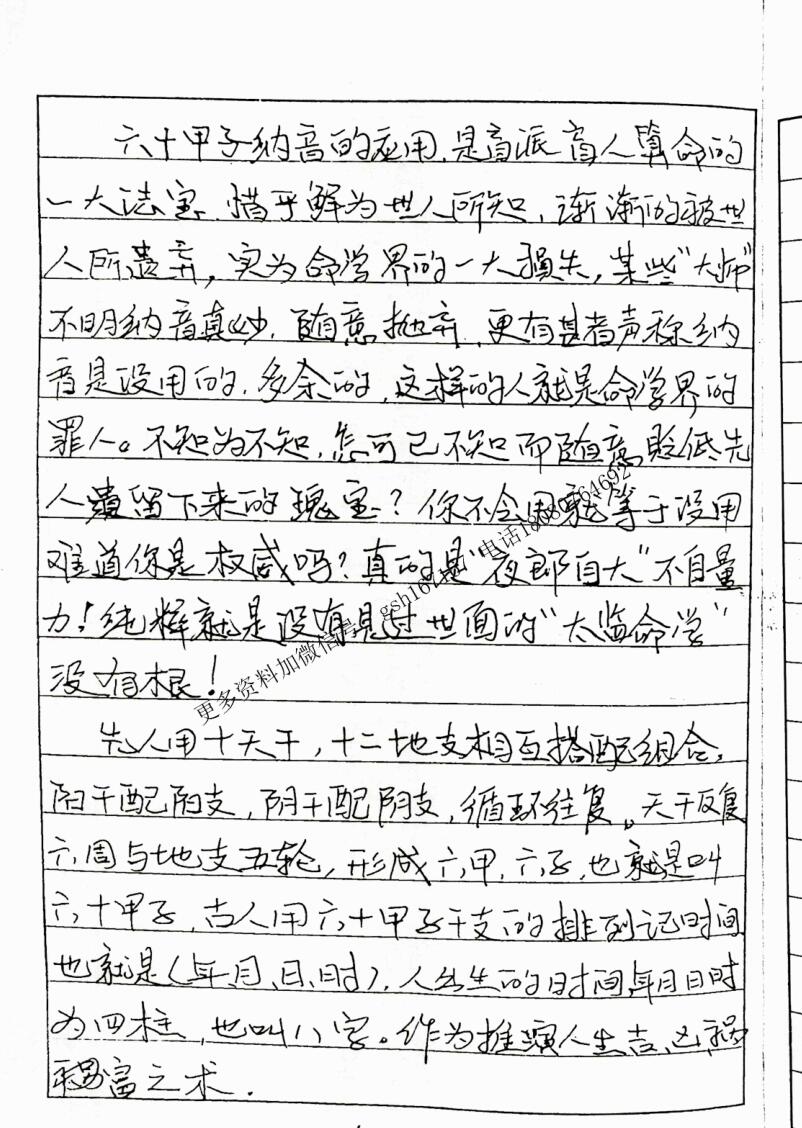 六十甲子纳音的应用，是盲派盲人算命的
一大法宝，惜乎鲜为世人所知，渐渐的被世
人所遗弃，实为命学界的一大损失，某些“大师”
不明纳音真妙，随意抛弃，更有甚者声称纳
音是没用的，多余的，这样的人就是命学界的
罪人。不知为不知，怎可己不知而随意贬低先
人遗留下来的瑰宝？你不会用就等于没用
难道你是权威吗？真的是“夜郎自大”不自量
力！纯粹就是没有见过世面的“太监命学”
没有根！
先人用十天干，十二地支相互搭配组合，
阳干配阳支，阴干配阴支，循环往复。天干反复
六周与地支五轮，形成六甲，六子，也就是叫
六十甲子，古人用六十甲子干支的排列记时间
也就是（年、月、日、时），人出生的时间年月日时
为四柱，也叫八字。作为推演人生吉、凶祸
福之术.
更多资料加微信号